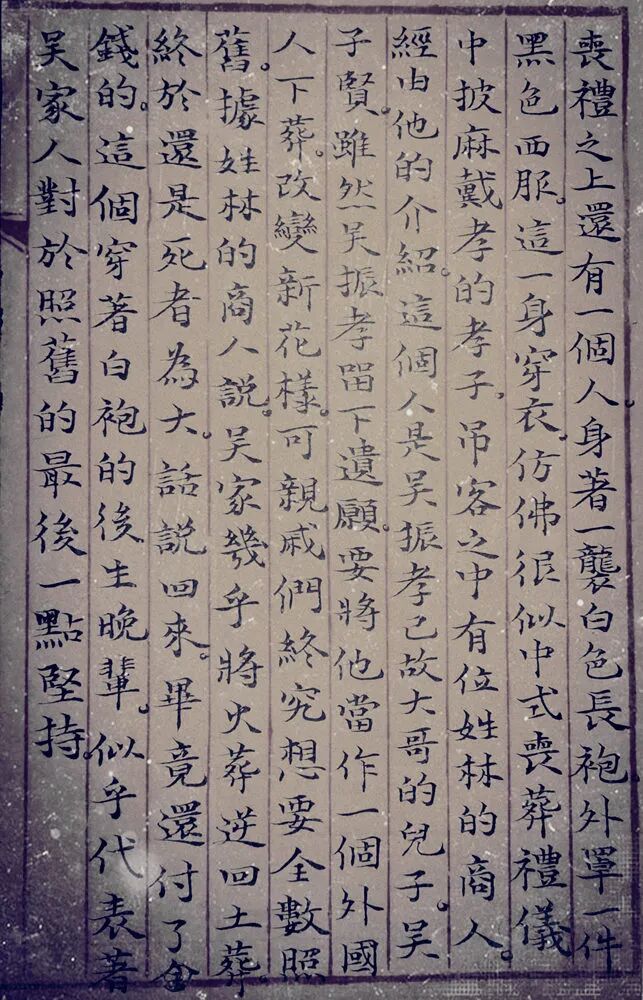 喪禮之上還有一個人身著一襲白色長袍外罩一件
黑色西服。這一身穿衣。仿佛很似中式喪葬禮儀
中披麻戴孝的孝子，吊客之中有位姓林的商人。
經由他的介紹。這個人是吴振孝已故大哥的兒子。吴
子賢。雖然吴振孝留下遺願。要將他當作一個外國
人下葬。改變新花樣。可親戚們終究想要全數照
舊。據姓林的商人說。吴家幾乎將火葬逆回土葬。
終於還是死者為大。話說回來。畢竟還付了金
錢的。這個穿著白袍的後生晚輩。似乎代表著
吴家人對於照舊的最後一點堅持。